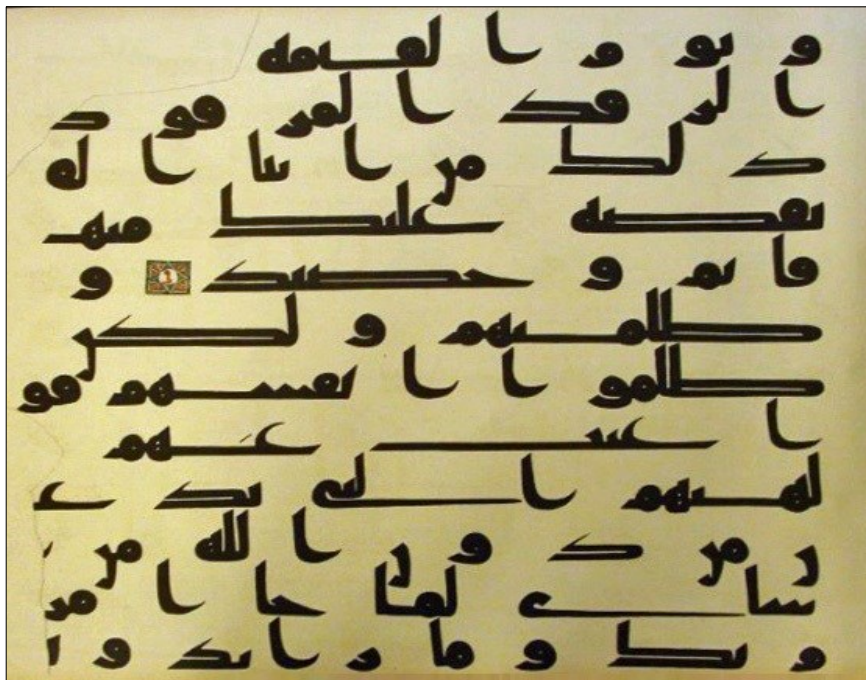 و يو م ا لقيمة
ا لر فد ا لمر فو د
ذ لك من ا نبا ا لقر
نقصه عليك منها
قا ئم و حصيد و
ظلمنهم و لكن
ظلمو ا ا نفسهم فما
ا غنت عنهم
لهتهم ا لتي يد عو
ن من د و ن ا لله من
شاي لما جا ا مر
ر بك و ما ز ا د و